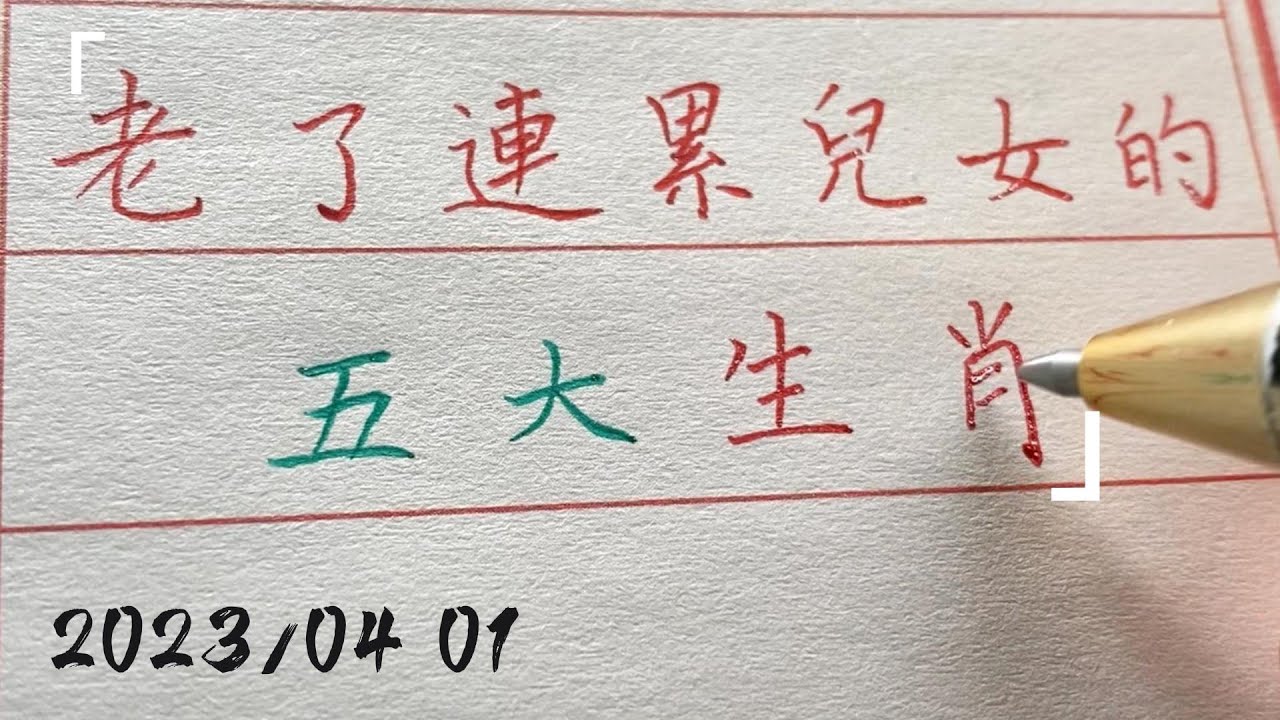 老了連累兒女的
五大生肖
2023/04 01